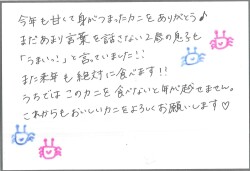 今年も甘くて身がつまったカニをありがとう♪
まだあまり言葉を話さない2歳の息子も
「うまいっ!」と言っていました!!
また来年も絶対に食べます!!
うちではこのカニを食べないと年が越せません。
これからもおいしいカニをよろしくお願いします♡